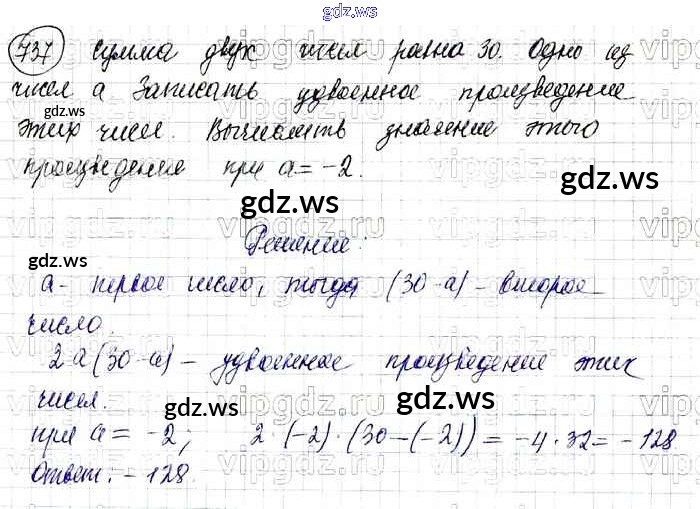 gdz.ws
737 Сумма двух чисел равна 30. Одно из
чисел a. Записать удвоенное произведение
этих чисел. Вычислить значение этого
произведения при a = -2.
Решение:
a - первое число, тогда (30-a) - второе
число.
2a(30-a) - удвоенное произведение этих
чисел.
при a = -2; 2·(-2)·(30-(-2)) = -4·32 = -128
Ответ: -128.
gdz.ws
gdz.ws
gdz.ws
gdz.ws
gdz.ws
gdz.ws
gdz.ws
gdz.ws
gdz.ws
vipgdz.ru